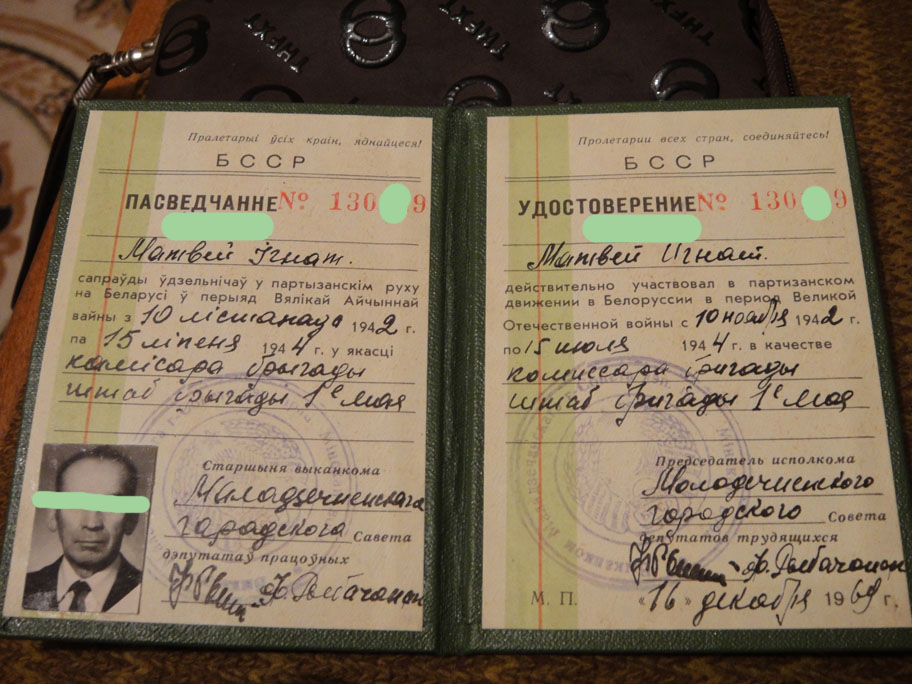 THFXT
THFXT
Пралетарыі ўсіх краін, яднайцеся!
БССР
ПАСВЕДЧАННЕ № 130 9
Матвей Ігнат.
сапраўды ўдзельнічаў у партызанскім руху
на Беларусі ў перыяд Вялікай Айчыннай
вайны з 10 лістапада 1942 г.
па 15 ліпеня 1944 г. у якасці
камісара брыгады
штаб брыгады 1е мая
Старшыня выканкома
Маладзечненскага
гарадскога Савета
дэпутатаў працоўных
Пролетарии всех стран, соединяйтесь!
БССР
УДОСТОВЕРЕНИЕ № 130 9
Матвей Игнат.
действительно участвовал в партизанском
движении в Белоруссии в период Великой
Отечественной войны с 10 ноября 1942 г.
по 15 июля 1944 г. в качестве
комиссара бригады
штаб бригады 1е мая
Председатель исполкома
Молодечненского
городского Совета
депутатов трудящихся
М. П. «16» декабря 1969 г.